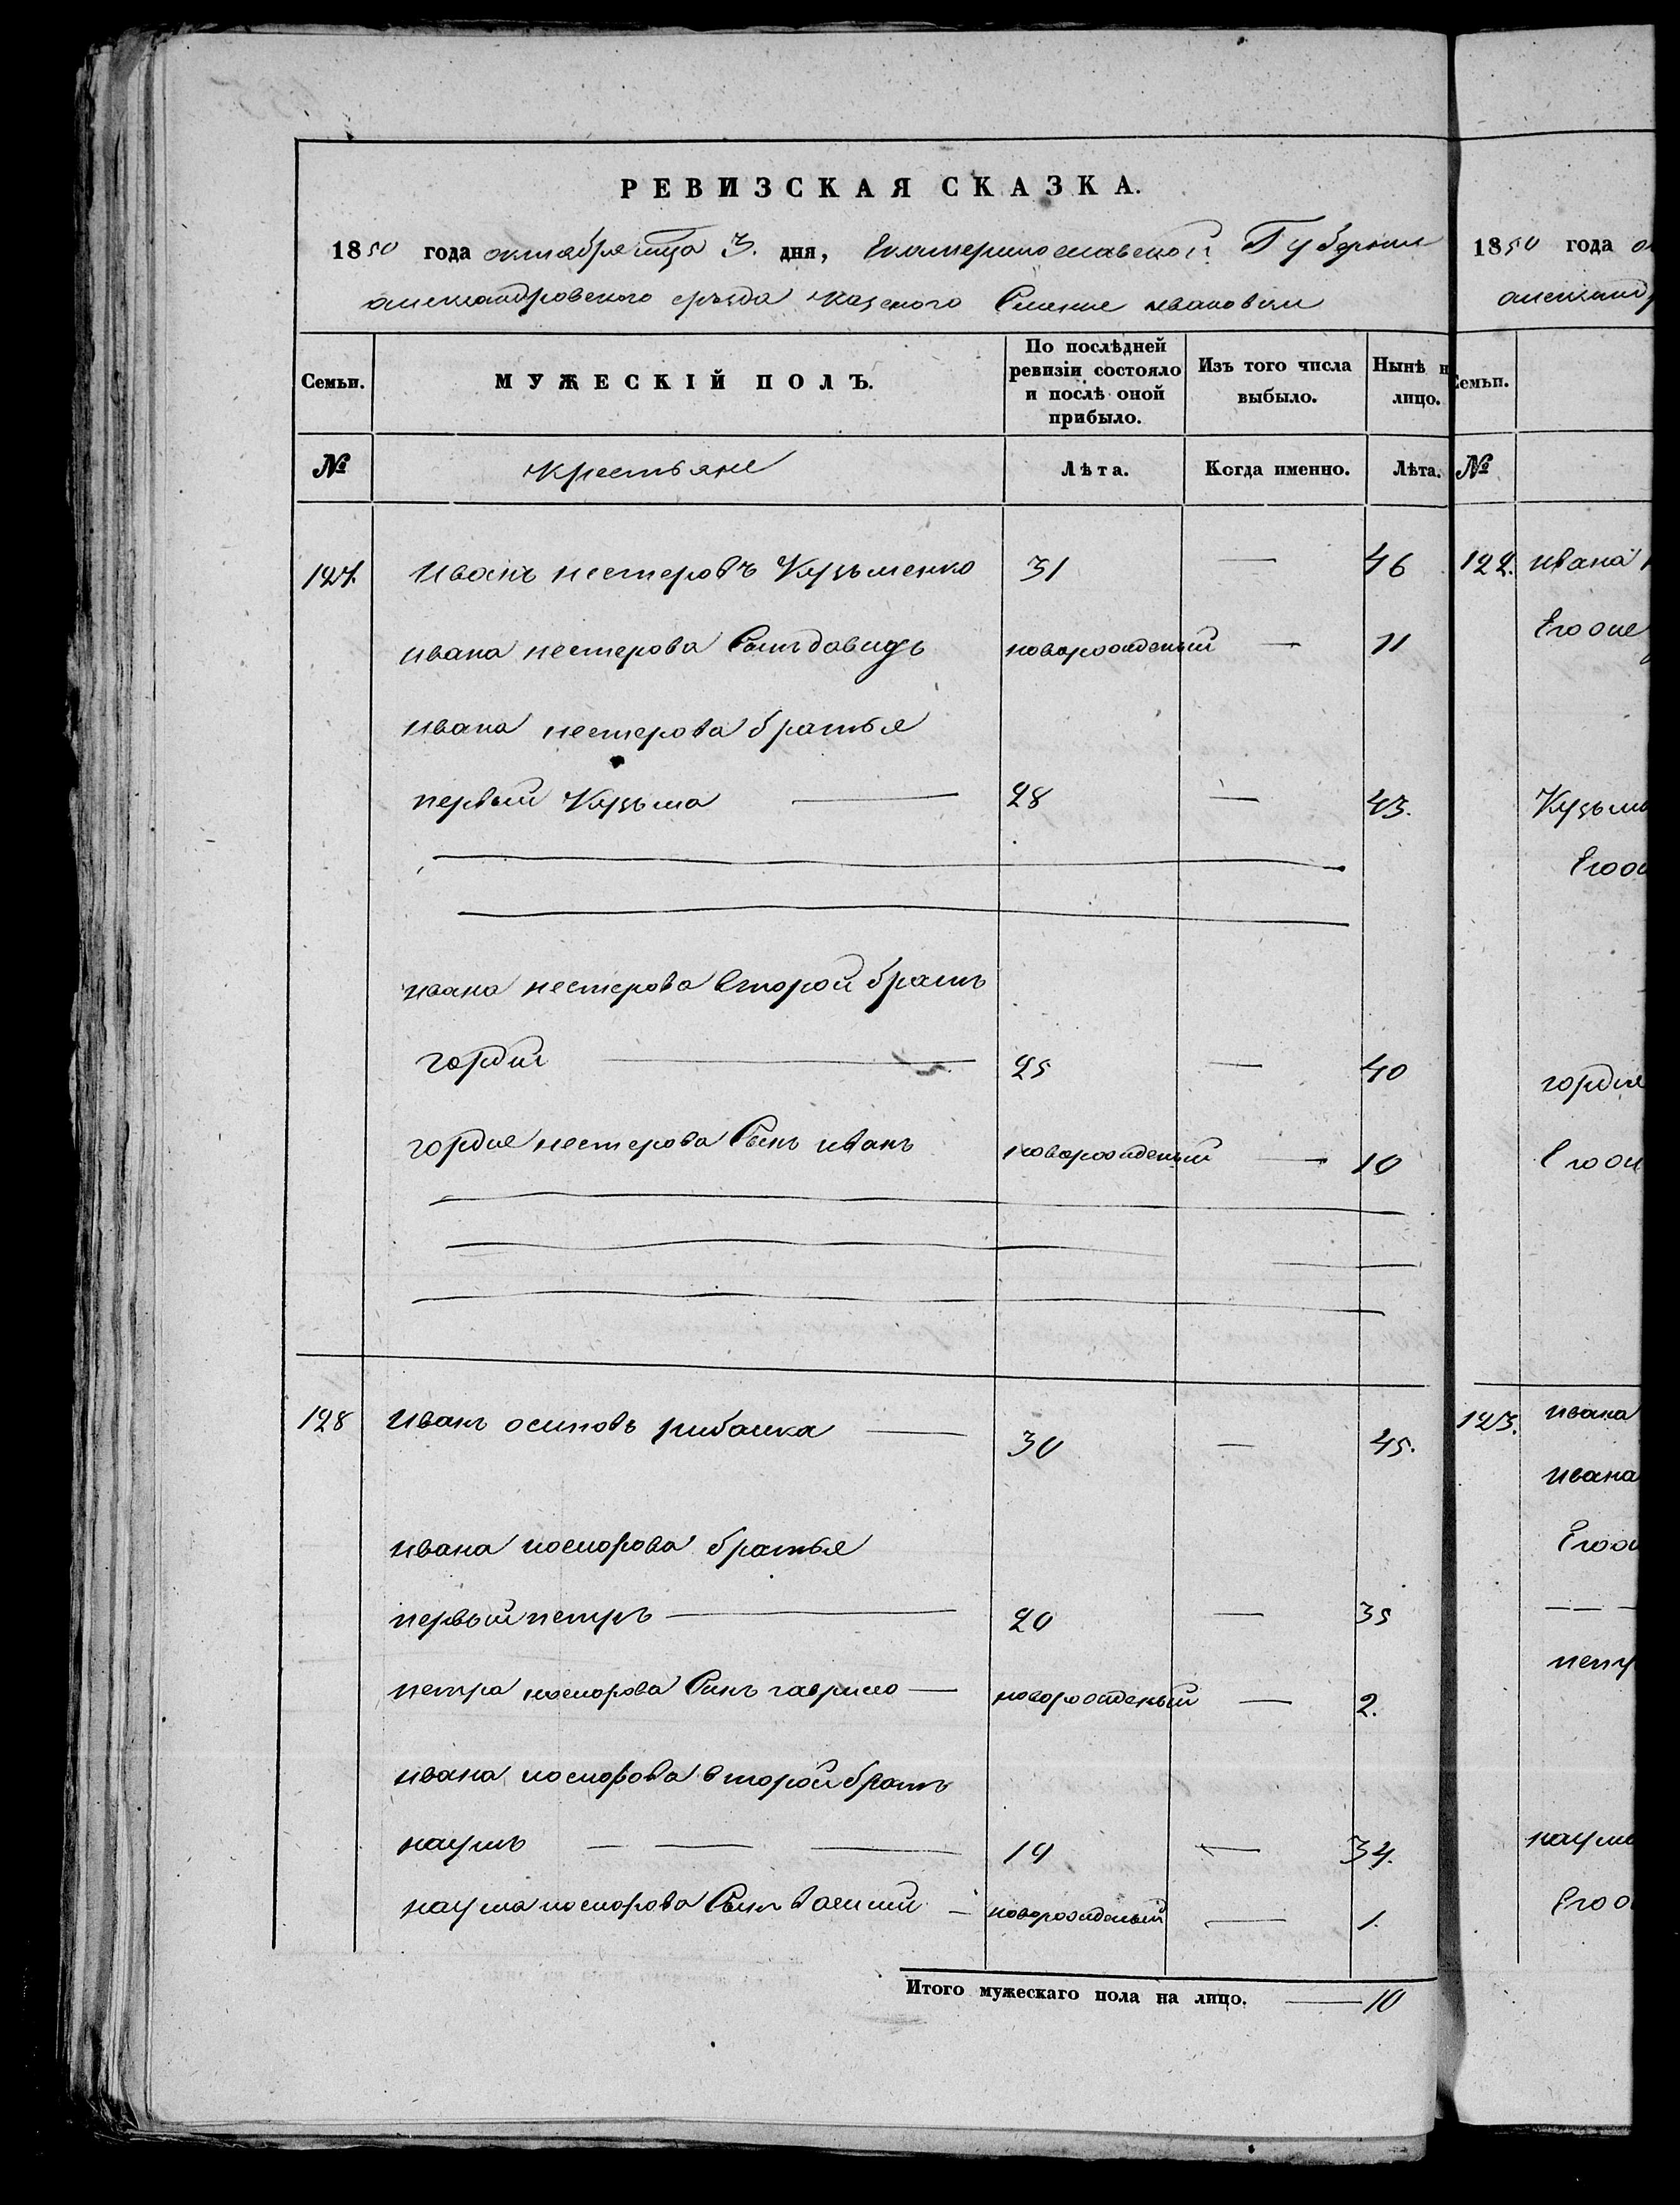 РЕВИЗСКАЯ СКАЗКА.
1850 года октября мца 3. дня, Екатеринославской Губернии
александровского уезда казеного Селение ивановки
Семьи.
МУЖЕСКІЙ ПОЛЪ.
По послѣдней ревизіи состояло и послѣ оной прибыло.
Изъ того числа выбыло.
Нынѣ н
лицо.
№
Крестьяне
Лѣта.
Когда именно.
Лѣта.
127. Иванъ нестеровъ Кузьменко 31 — 46
ивана нестерова Сынъ давидъ новорожденый — 11
ивана нестерова братья
первый Кузьма — 28 — 43.
ивана нестерова второй братъ
гордий — 25 — 40
гордия нестерова Сынъ иванъ новорожденый — 10
128 Иванъ осиповъ рибалка — 30 — 45.
ивана иосипова братья
первый петръ — 20 — 35
петра иосипова Синъ гаврило — новорожденый — 2.
ивана иосипова второй братъ
наумъ — — — 19 — 34.
наума иосипова Сынъ василий — новорожденый — 1.
Итого мужескаго пола на лицо. — 10
1850 года о
александ
Семьи.
№
122. ивана
Его
Кузьм
Его
гордия
Его
123. ивана
ивана
Его
— —
петр
наум
Его